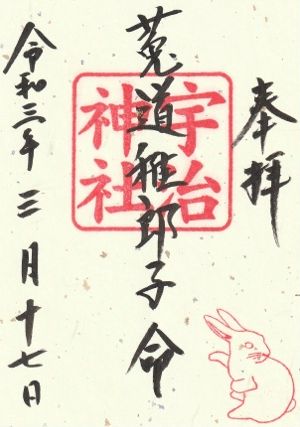 奉拝
菟道稚郎子命
宇治
神社
令和三年三月十七日